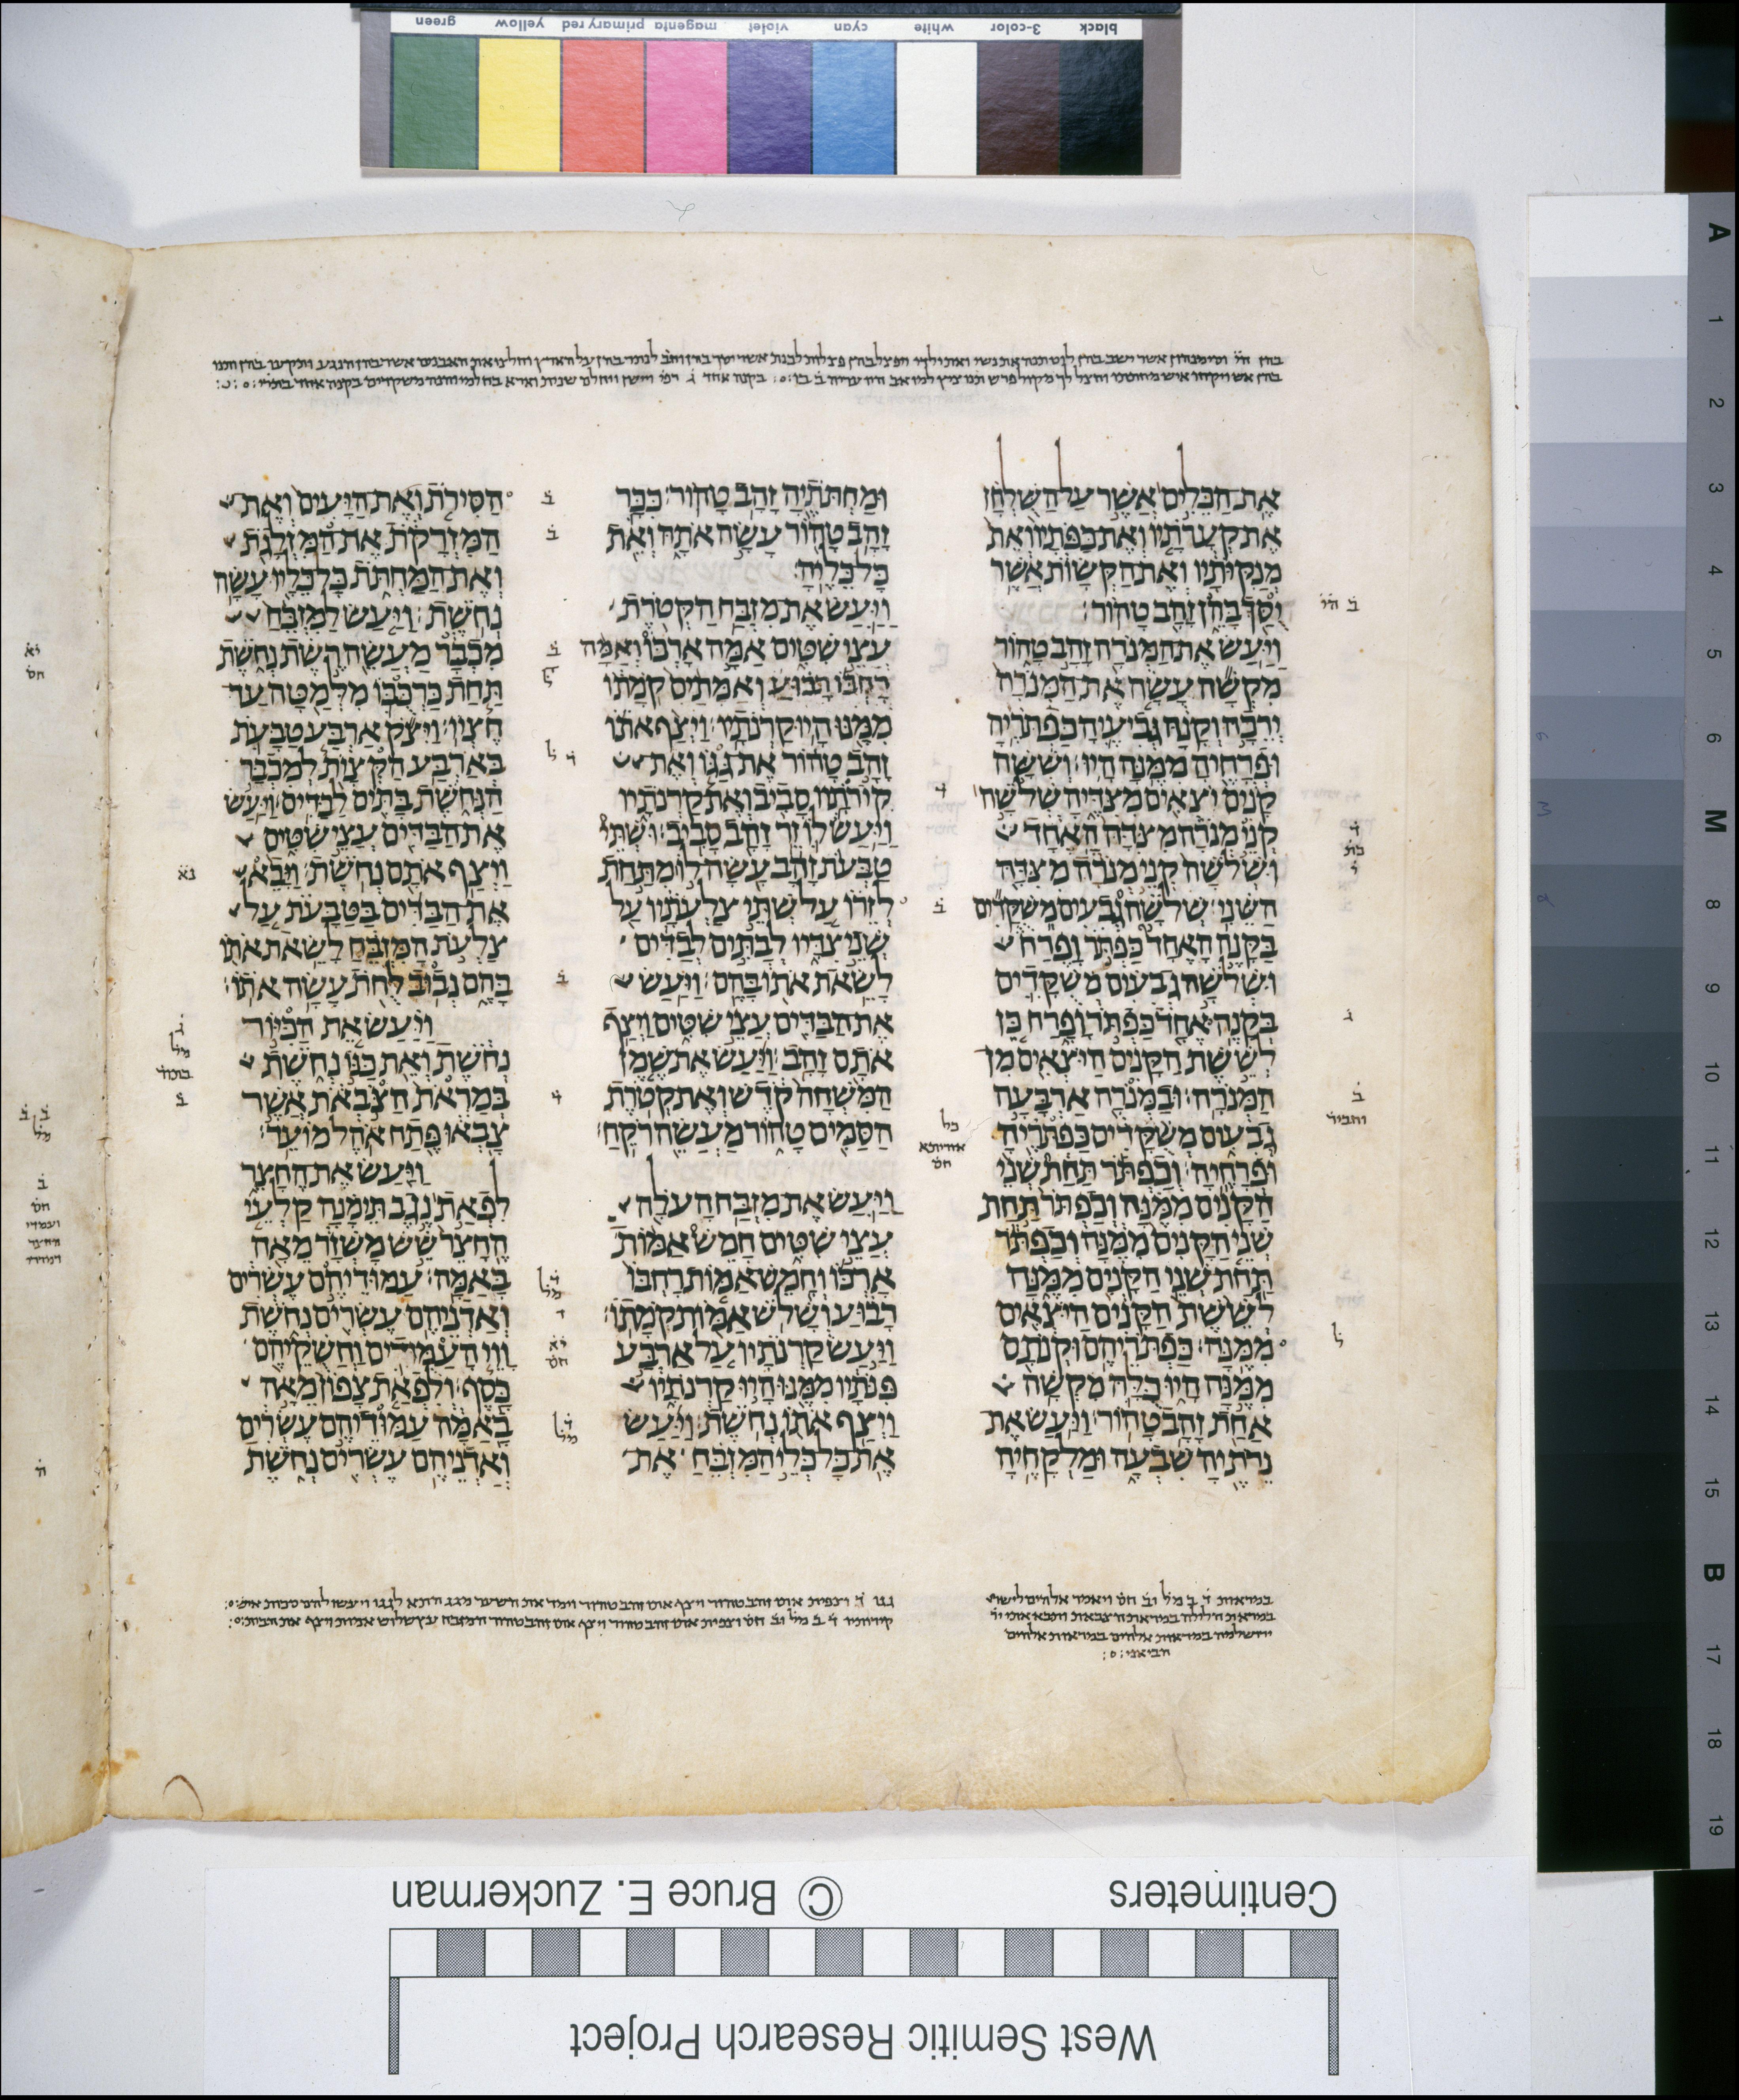 black 3-color white cyan violet magenta primary red yellow green
אֶת־הַכֵּלִים אֲשֶׁר עַל־הַשֻּׁלְחָן
אֶת־קְעָרֹתָיו וְאֶת־כַּפֹּתָיו וְאֵת
מְנַקִּיֹּתָיו וְאֶת־הַקְּשָׂוֹת אֲשֶׁר
יֻסַּךְ בָּהֵן זָהָב טָהוֹר׃
וַיַּעַשׂ אֶת־הַמְּנֹרָה זָהָב טָהוֹר
מִקְשָׁה עָשָׂה אֶת־הַמְּנֹרָה
יְרֵכָהּ וְקָנָהּ גְּבִיעֶיהָ כַּפְתֹּרֶיהָ
וּפְרָחֶיהָ מִמֶּנָּה הָיוּ׃ וְשִׁשָּׁה
קָנִים יֹצְאִים מִצִּדֶּיהָ שְׁלֹשָׁה
קְנֵי מְנֹרָה מִצִּדָּהּ הָאֶחָד
וּשְׁלֹשָׁה קְנֵי מְנֹרָה מִצִּדָּהּ
הַשֵּׁנִי׃ שְׁלֹשָׁה גְבִעִים מְשֻׁקָּדִים
בַּקָּנֶה הָאֶחָד כַּפְתֹּר וָפֶרַח
וּשְׁלֹשָׁה גְבִעִים מְשֻׁקָּדִים
בְּקָנֶה אֶחָד כַּפְתֹּר וָפָרַח כֵּן
לְשֵׁשֶׁת הַקָּנִים הַיֹּצְאִים מִן־
הַמְּנֹרָה׃ וּבַמְּנֹרָה אַרְבָּעָה
גְבִעִים מְשֻׁקָּדִים כַּפְתֹּרֶיהָ
וּפְרָחֶיהָ׃ וְכַפְתֹּר תַּחַת שְׁנֵי
הַקָּנִים מִמֶּנָּה וְכַפְתֹּר תַּחַת
שְׁנֵי הַקָּנִים מִמֶּנָּה וְכַפְתֹּר
תַּחַת־שְׁנֵי הַקָּנִים מִמֶּנָּה
לְשֵׁשֶׁת הַקָּנִים הַיֹּצְאִים
מִמֶּנָּה׃ כַּפְתֹּרֵיהֶם וּקְנֹתָם
מִמֶּנָּה הָיוּ כֻּלָּהּ מִקְשָׁה
אַחַת זָהָב טָהוֹר׃ וַיַּעַשׂ אֶת־
נֵרֹתֶיהָ שִׁבְעָה וּמַלְקָחֶיהָ
וּמַחְתֹּתֶיהָ זָהָב טָהוֹר׃ כִּכָּר
זָהָב טָהוֹר עָשָׂה אֹתָהּ וְאֵת
כָּל־כֵּלֶיהָ׃
וַיַּעַשׂ אֶת־מִזְבַּח הַקְּטֹרֶת
עֲצֵי שִׁטִּים אַמָּה אָרְכּוֹ וְאַמָּה
רָחְבּוֹ רָבוּעַ וְאַמָּתַיִם קֹמָתוֹ
מִמֶּנּוּ הָיוּ קַרְנֹתָיו׃ וַיְצַף אֹתוֹ
זָהָב טָהוֹר אֶת־גַּגּוֹ וְאֶת־
קִירֹתָיו סָבִיב וְאֶת־קַרְנֹתָיו
וַיַּעַשׂ לוֹ זֵר זָהָב סָבִיב׃ וּשְׁתֵּי
טַבְּעֹת זָהָב עָשָׂה־לוֹ מִתַּחַת
לְזֵרוֹ עַל שְׁתֵּי צַלְעֹתָיו עַל
שְׁנֵי צִדָּיו לְבָתִּים לְבַדִּים
לָשֵׂאת אֹתוֹ בָּהֶם׃ וַיַּעַשׂ
אֶת־הַבַּדִּים עֲצֵי שִׁטִּים וַיְצַף
אֹתָם זָהָב׃ וַיַּעַשׂ אֶת־שֶׁמֶן
הַמִּשְׁחָה קֹדֶשׁ וְאֶת־קְטֹרֶת
הַסַּמִּים טָהוֹר מַעֲשֵׂה רֹקֵחַ׃
וַיַּעַשׂ אֶת־מִזְבַּח הָעֹלָה
עֲצֵי שִׁטִּים חָמֵשׁ אַמּוֹת
אָרְכּוֹ וְחָמֵשׁ־אַמּוֹת רָחְבּוֹ
רָבוּעַ וְשָׁלֹשׁ אַמּוֹת קֹמָתוֹ׃
וַיַּעַשׂ קַרְנֹתָיו עַל אַרְבַּע
פִּנֹּתָיו מִמֶּנּוּ הָיוּ קַרְנֹתָיו
וַיְצַף אֹתוֹ נְחֹשֶׁת׃ וַיַּעַשׂ
אֶת־כָּל־כְּלֵי הַמִּזְבֵּחַ אֶת־
הַסִּירֹת וְאֶת־הַיָּעִים וְאֶת־
הַמִּזְרָקֹת אֶת־הַמִּזְלָגֹת
וְאֶת־הַמַּחְתֹּת כָּל־כֵּלָיו עָשָׂה
נְחֹשֶׁת׃ וַיַּעַשׂ לַמִּזְבֵּחַ
מִכְבָּר מַעֲשֵׂה רֶשֶׁת נְחֹשֶׁת
תַּחַת כַּרְכֻּבּוֹ מִלְּמַטָּה עַד־
חֶצְיוֹ׃ וַיִּצֹק אַרְבַּע טַבָּעֹת
בְּאַרְבַּע הַקְּצָוֹת לְמִכְבַּר
הַנְּחֹשֶׁת בָּתִּים לַבַּדִּים׃ וַיַּעַשׂ
אֶת־הַבַּדִּים עֲצֵי שִׁטִּים
וַיְצַף אֹתָם נְחֹשֶׁת׃ וַיָּבֵא
אֶת־הַבַּדִּים בַּטַּבָּעֹת עַל
צַלְעֹת הַמִּזְבֵּחַ לָשֵׂאת אֹתוֹ
בָּהֶם נְבוּב לֻחֹת עָשָׂה אֹתוֹ׃
וַיַּעַשׂ אֵת הַכִּיּוֹר
נְחֹשֶׁת וְאֵת כַּנּוֹ נְחֹשֶׁת
בְּמַרְאֹת הַצֹּבְאֹת אֲשֶׁר
צָבְאוּ פֶּתַח אֹהֶל מוֹעֵד׃
וַיַּעַשׂ אֶת־הֶחָצֵר
לִפְאַת נֶגֶב תֵּימָנָה קַלְעֵי
הֶחָצֵר שֵׁשׁ מָשְׁזָר מֵאָה
בָּאַמָּה׃ עַמּוּדֵיהֶם עֶשְׂרִים
וְאַדְנֵיהֶם עֶשְׂרִים נְחֹשֶׁת
וָוֵי הָעַמֻּדִים וַחֲשֻׁקֵיהֶם
כָּסֶף׃ וְלִפְאַת צָפוֹן מֵאָה
בָאַמָּה עַמּוּדֵיהֶם עֶשְׂרִים
וְאַדְנֵיהֶם עֶשְׂרִים נְחֹשֶׁת
Centimeters © Bruce E. Zuckerman
West Semitic Research Project
A 1 2 3 4 5 6 M 8 9 10 11 12 13 14 15 B 17 18 19